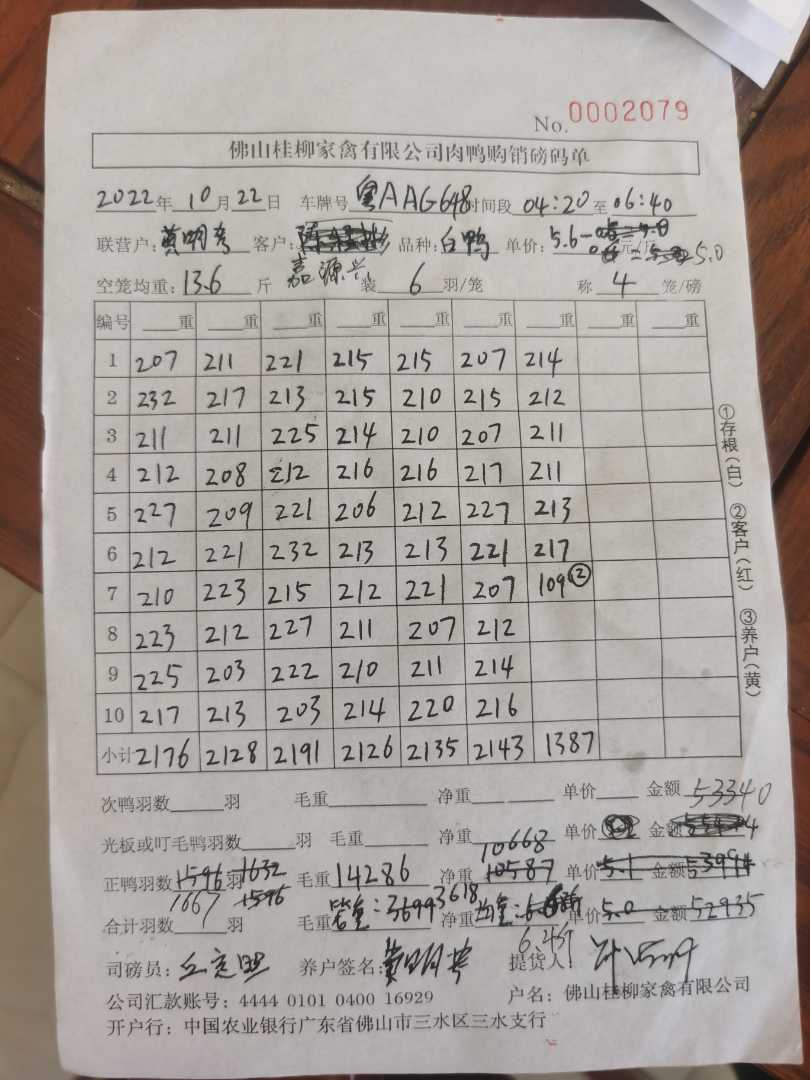 No. 0002079
佛山桂柳家禽有限公司肉鸭购销磅码单
2022年 10月 22日 车牌号 粤AAG648 时间段 04:20 至 06:40
联营户: 客户: 品种: 白鸭 单价: 5.6- 5.0
空笼均重: 13.6 斤 嘉源兴 装 6 羽/笼 称 4 笼/磅
编号 重 重 重 重 重 重 重 重 重
1 207 211 221 215 215 207 214
2 232 217 213 215 210 215 212
3 211 211 225 214 210 207 211
4 212 208 212 216 216 217 211
5 227 209 221 206 212 227 213
6 212 221 232 213 213 221 217
7 210 223 215 212 221 207 109②
8 223 212 227 211 207 212
9 225 203 222 210 211 214
10 217 213 203 214 220 216
小计 2176 2128 2191 2126 2135 2143 1387
①存根(白) ②客户(红) ③养户(黄)
次鸭羽数 羽 毛重 净重 单价 金额 53340
光板或叮毛鸭羽数 羽 毛重 净重 单价 金额
10668
正鸭羽数 1596 1632 羽 毛重 14286 净重 10587 单价 5.1 金额
1667 1596
合计羽数 羽 毛重 皆重: 3699 3618 净重 均重: 单价 5.0 金额 52935
司磅员: 养户签名: 提货人:
公司汇款账号: 4444 0101 0400 16929 户名: 佛山桂柳家禽有限公司
开户行: 中国农业银行广东省佛山市三水区三水支行